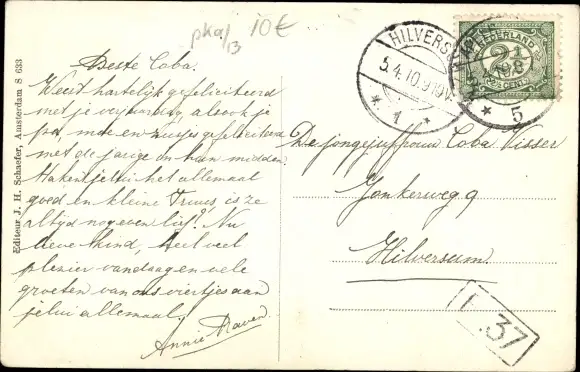 pka/13 10€
Beste Coba.
Weest hartelijk gefeliciteerd
met je verjaardag, alsook je
pa, moe en zusjes gefeliciteerd
met de jarige in hun midden.
Maken jelui het allemaal
goed en kleine Truus, is ze
altijd nog even lief? Nu
lieve kind, heel veel
plezier vandaag en vele
groeten van ons viertjes aan
jelui allemaal.
Annie
Editeur J. H. Schaefer, Amsterdam S 633
HILVERS
5.4.10.9-10V.
1
NEDERLAND
2½
CENT
5
De jongejuffrouw Coba Visser
Jonkerweg 9
Hilversum.
37